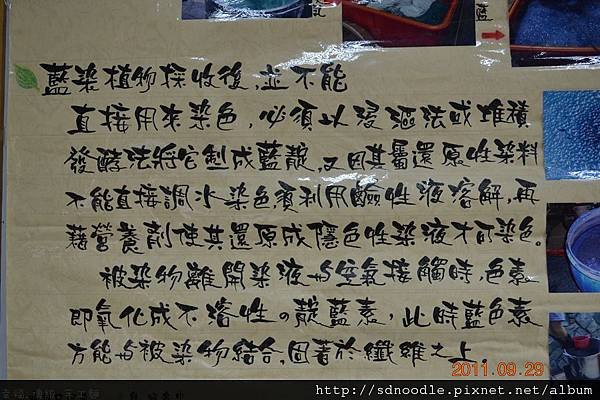 藍染植物採收後,並不能
直接用來染色,必須以浸漚法或堆積
發酵法將它製成藍靛,又因其屬還原性染料
不能直接調水染色須利用鹼性液溶解,再
藉營養劑使其還原成隱色性染液才可染色。
被染物離開染液与空氣接觸時,色素
即氧化成不溶性。靛藍素,此時藍色素
方能与被染物結合,固著於纖維之上。
2011.09.29
http://sdnoodle.pixnet.net/album